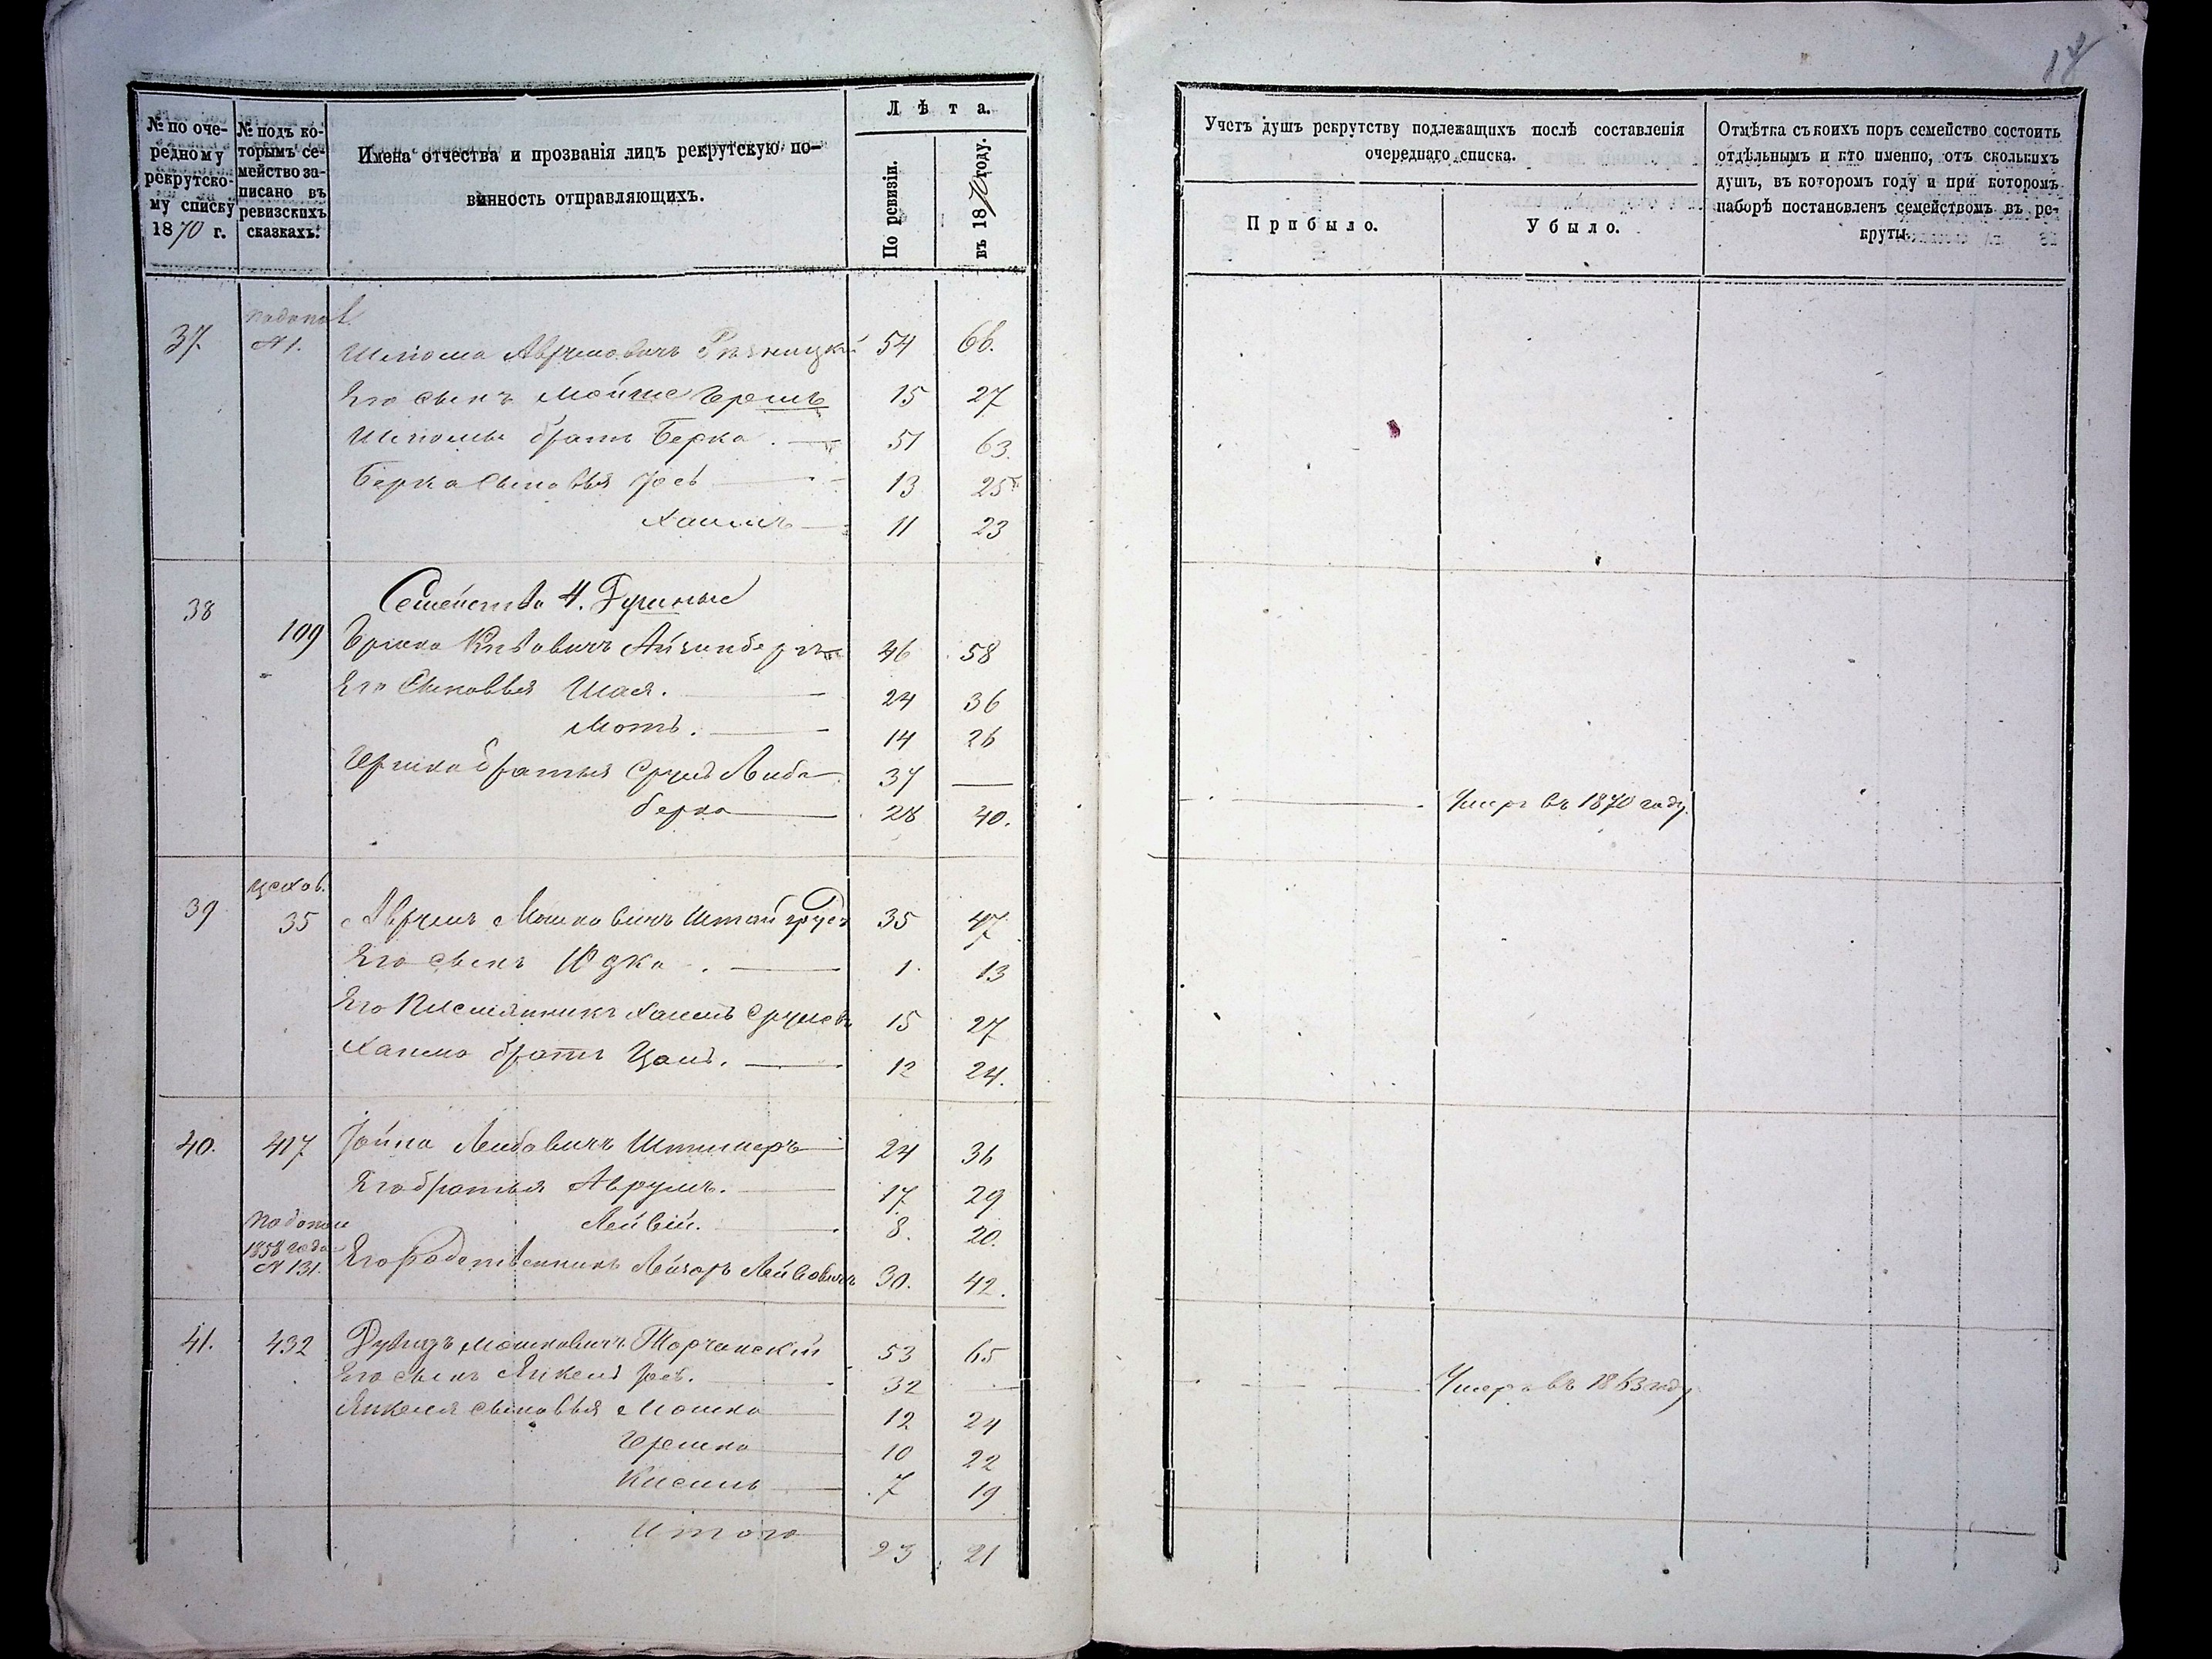 № по оче-
редному
рекрутско-
му списку
1870 г.
№ подъ ко-
торымъ се-
мейство за-
писано въ
ревизскихъ
сказкахъ.
Имена отчества и прозванія лицъ рекрутскую по-
винность отправляющихъ.
Лѣта.
По ревизіи.
въ 1870 году.
37. № 1. Аврумовичъ 54 66.
Его сынъ Мойше Гершъ 15 27
братъ Берко. 51 63.
Берка сыновья Іось 13 25
Хаимъ 11 23
Семейства 4. Душныя
38 109 Айзинбергъ 46 58
Его сыновья Шая. 24 36
Моть. 14 26
братья Сруль Лейба 37 —
Берко 28 40.
цехов.
39 35 Аврумъ Мошковичъ 35 47
Его сынъ Юдко. 1. 13
Его племянникъ Хаимъ 15 27
Хаима братъ 12 24.
40. 417 Іойна Лейбовичъ 24 36
Его братья Аврумъ. 17 29
Лейвій. 8. 20.
1858 года
№ 131. Его родственникъ Лейзоръ Лейбовичъ 30. 42.
41. 432 Мошковичъ Торчинскій 53 65
Его сынъ Янкель Іось. 32 —
Янкеля сыновья Мошко 12 24
Гершко 10 22
Кисиль 7 19
Итого 23 21
18
Учетъ душъ рекрутству подлежащихъ послѣ составленія
очереднаго списка.
Прибыло.
Убыло.
Отмѣтка съ коихъ поръ семейство состоитъ
отдѣльнымъ и кто именно, отъ сколькихъ
душъ, въ которомъ году и при которомъ
наборѣ постановленъ семействомъ въ ре-
круты.
Умеръ въ 1870 году.
Умеръ въ 1863 году